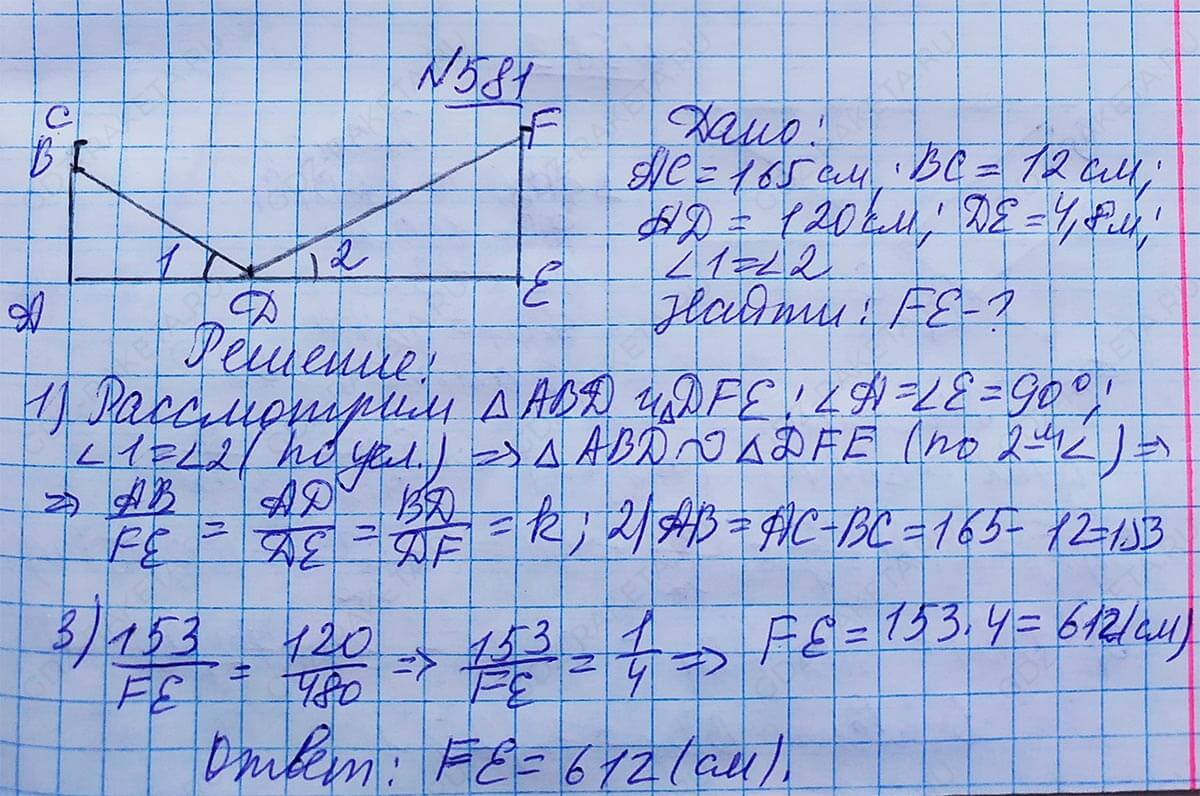 №581
C
B
F
1
2
A
D
E
Дано:
AC = 165 см; BC = 12 см;
AD = 120 см; DE = 4,8 м;
∠1 = ∠2
Найти: FE - ?
Решение:
1) Рассмотрим △ABD и △DFE: ∠A = ∠E = 90°;
∠1 = ∠2 (по усл.) => △ABD ∾ △DFE (по 2-м ∠) =>
=> AB/FE = AD/DE = BD/DF = k; 2) AB = AC - BC = 165 - 12 = 153
3) 153/FE = 120/480 => 153/FE = 1/4 => FE = 153 · 4 = 612 (см)
Ответ: FE = 612 (см).